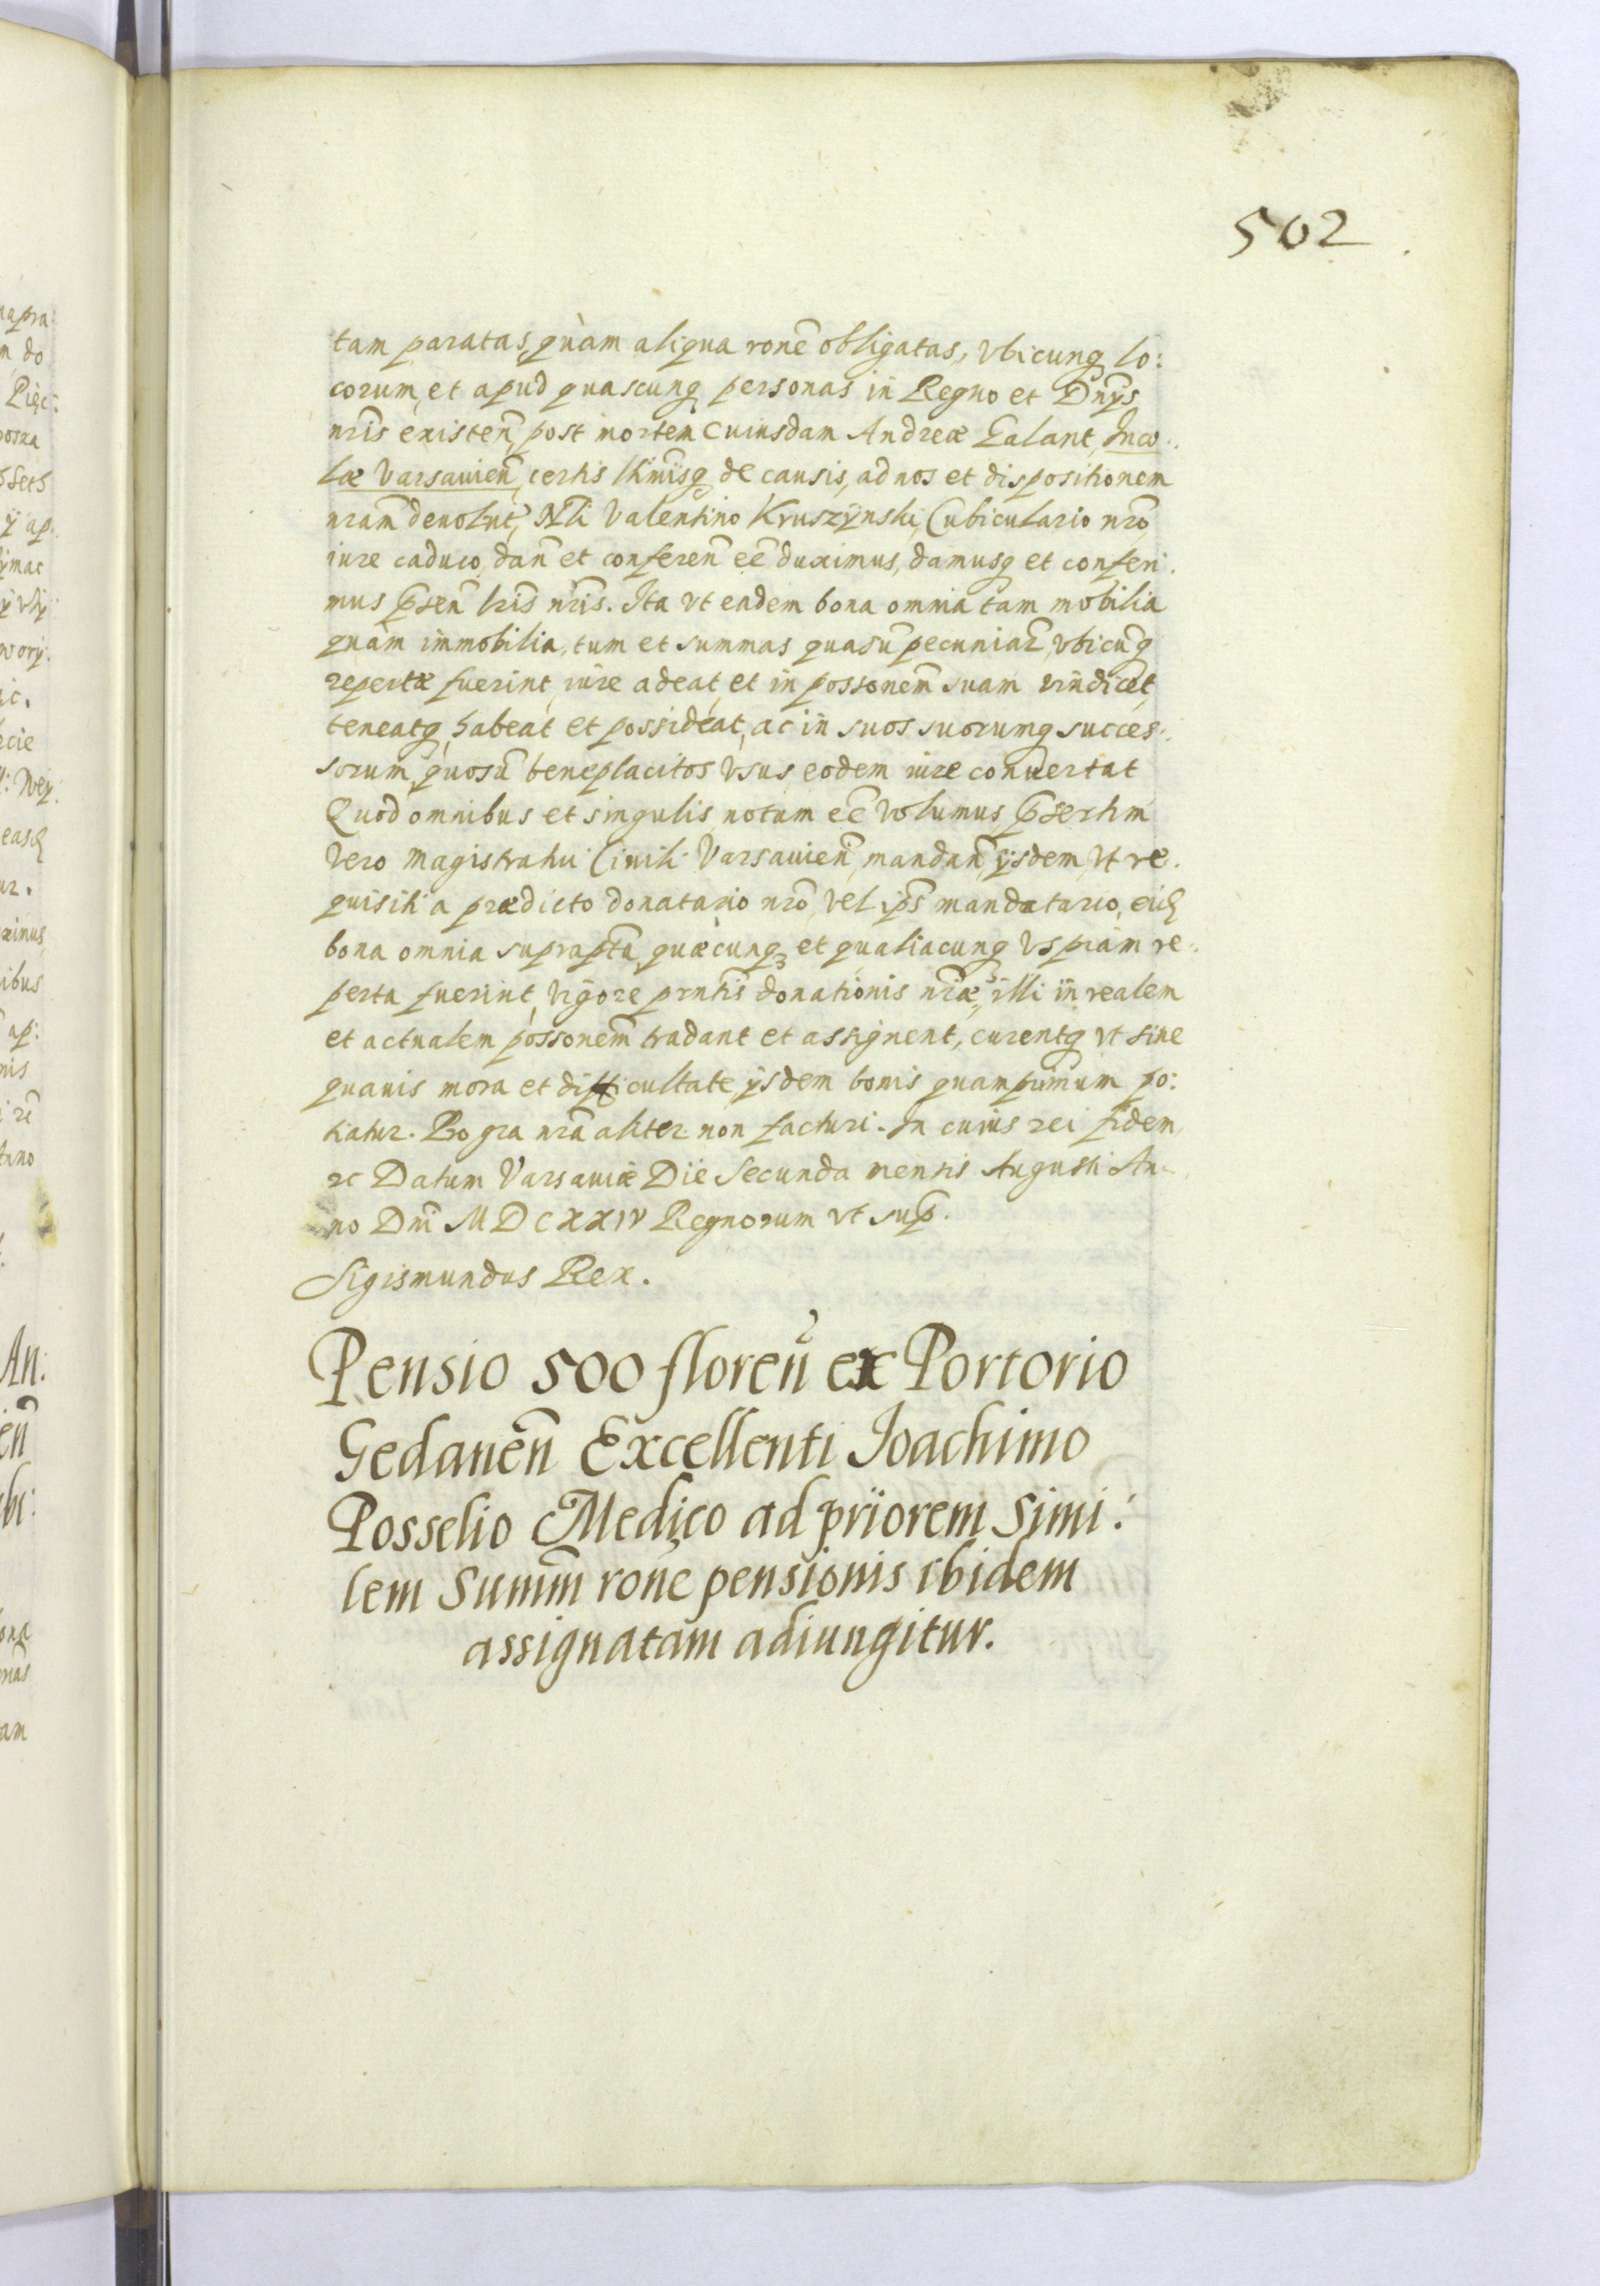 502
tam paratas, quàm aliqua ronẽ obligatas, vbicunq lo:
corum, et apud quascunq personas in Regno et Dnÿs
nrĩs existen̄, post mortem Cuiusdam Andreæ Galant, Inco:
læ Varsauien̄, certis lt̃imisq de causis, ad nos et dispositionem
nram̄ deuolut̃, Nĺi Valentino Kruszÿnski, Cubiculario nrõ,
iure caduco, dan̄ et conferen̄ eẽ duximus, damusq et conferi:
mus p̃sen̄ lrĩs nrĩs. Ita vt eadem bona omnia tam mobilia
quàm immobilia, tum et summas quasũ pecuniar̃, vbicũq
repertæ fuerint, iure adeat, et in possonem̃ suam vindicet,
teneatq, habeat et possideat, ac in suos suorumq succes:
sorum, quosũ beneplacitos vsus, eodem iure conuertat
Quod omnibus et singulis, notum eẽ volumus, p̃sertim
vero Magistratui Ciuili Varsauien̄, mandan̄ ÿsdem, vt re:
quisiti a prædicto donatario nrõ, vel ips̃ mandatario,
bona omnia suprapt̃a, quæcunq, et qualiacunq vspiam re:
perta fuerint, vigore prñtis donationis nrĩæ, illi in realem
et actualem possonem̃ tradant et assignent, curentq vt sine
quauis mora et difficultate, ÿsdem bonis quamprimum po:
tiatur. Pro gra nrã aliter non facturi. In cuius rei fidem
ꝛc Datum Varsauiæ Die Secunda mensis Augusti An:
no Dnĩ M D C XXIV Regnorum vt sup̃.
Sigismundus Rex.
Pensio 500 florenũ ex Portorio
Gedanen̄ Excellenti Joachimo
Posselio Medico ad priorem Simi:
lem Summ̃ ronẽ pensionis ibidem
assignatam adiungitur.